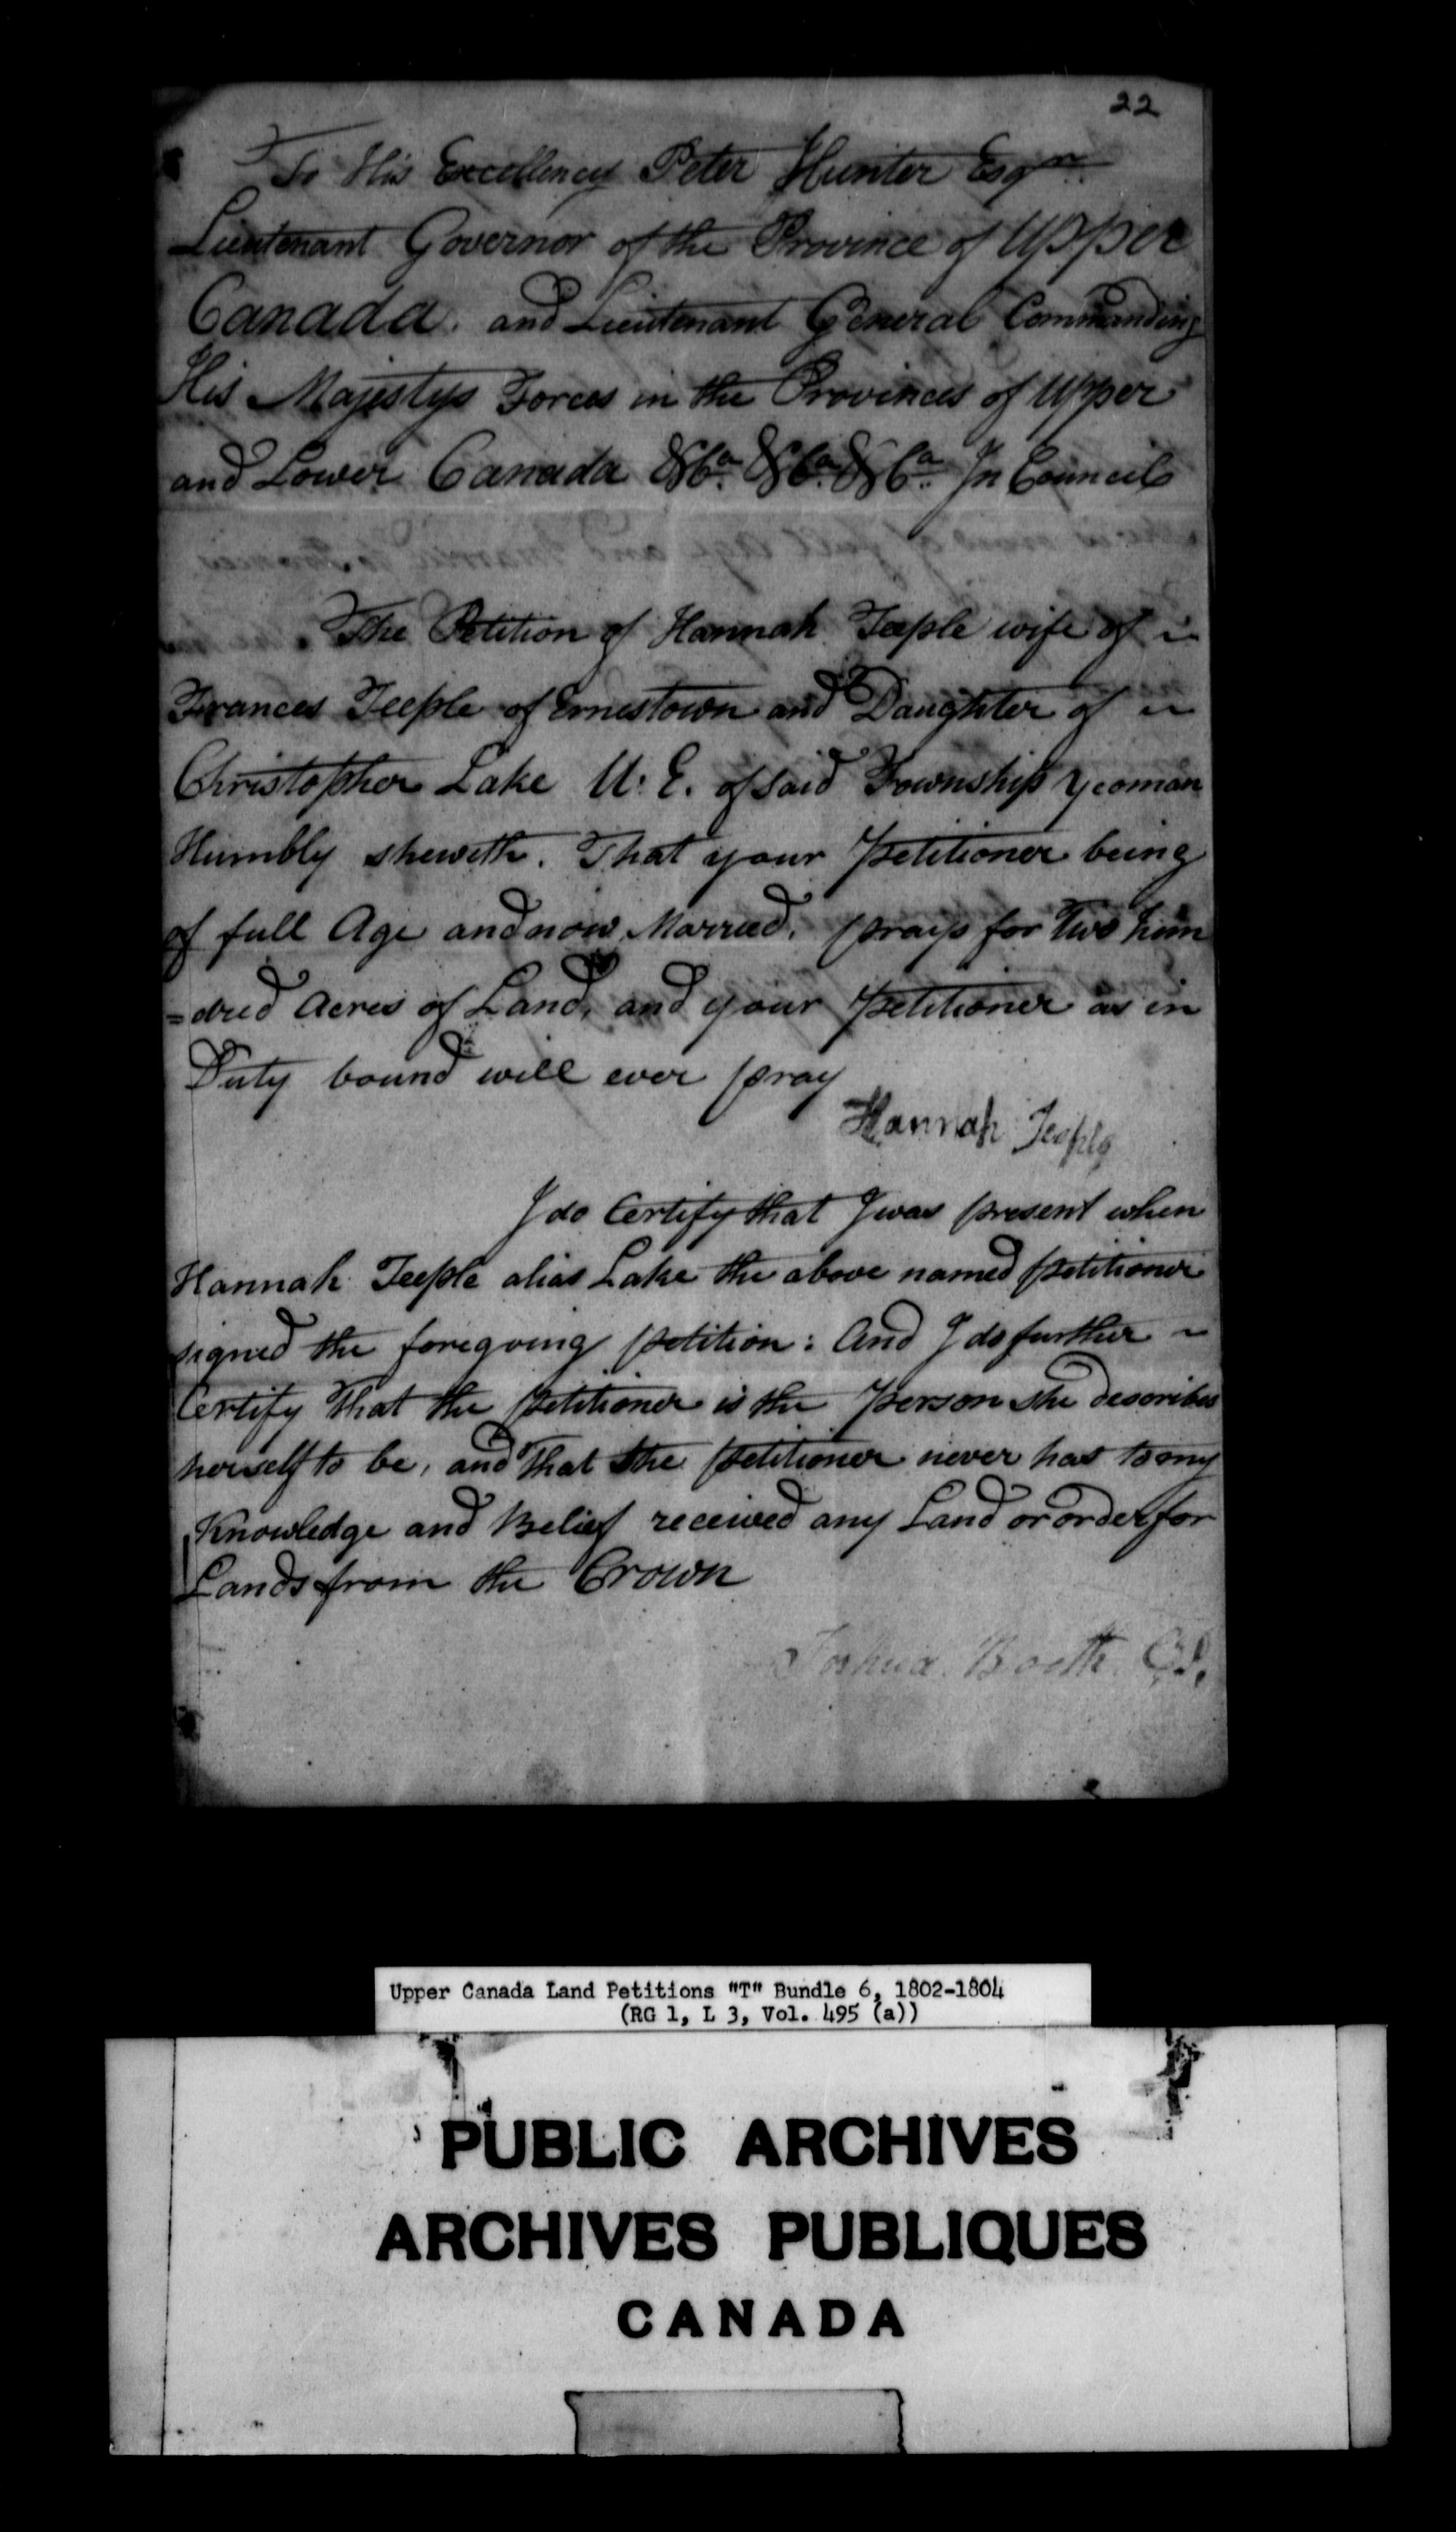 22
To His Excellency Peter Hunter Esqr.
Lieutenant Governor of the Province of Upper
Canada. and Lieutenant General Commanding
His Majestys Forces in the Provinces of Upper
and Lower Canada &Ca. &Ca. &Ca. In Council
The Petition of Hannah Teeple wife of
Frances Teeple of Ernestown and Daughter of
Christopher Lake U. E. of said Township yeoman
Humbly sheweth. That your petitioner being
of full Age and now Married. prays for Two hun
=dred Acres of Land, and your petitioner as in
Duty bound will ever pray
Hannah Teeple
I do Certify that I was present when
Hannah Teeple alias Lake the above named petitioner
signed the foregoing petition: And I do further
Certify That the petitioner is the person she describes
herself to be, and That the petitioner never has to my
Knowledge and Belief received any Land or order for
Lands from the Crown
Joshua Booth
Upper Canada Land Petitions "T" Bundle 6, 1802-1804
(RG 1, L 3, Vol. 495 (a))
PUBLIC ARCHIVES
ARCHIVES PUBLIQUES
CANADA